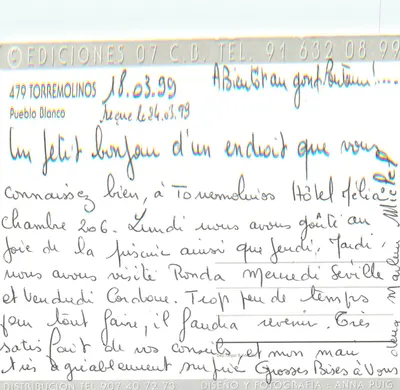 © EDICIONES 07 C.B. TEL. 91 632 08 99
479 TORREMOLINOS 18.03.99 A Bientôt au
Pueblo Blanco reçue le 24.03.99
Un petit bonjour d'un endroit que vous
connaissez bien, à Torremolinos Hôtel Mélia
Chambre 206. Lundi nous avons goûté au
joie de la piscine ainsi que Jeudi. Mardi,
nous avons visité Ronda Mercredi Séville
et Vendredi Cordoue. Trop peu de temps
pour tout faire, il faudra revenir. Très
satisfait de vos conseils, et mon mari
très agréablement surpris Grosses Bises à Vous
DISTRIBUCION TEL. 907 40 72 73 DISEÑO Y FOTOGRAFIA: ANNA PUIG